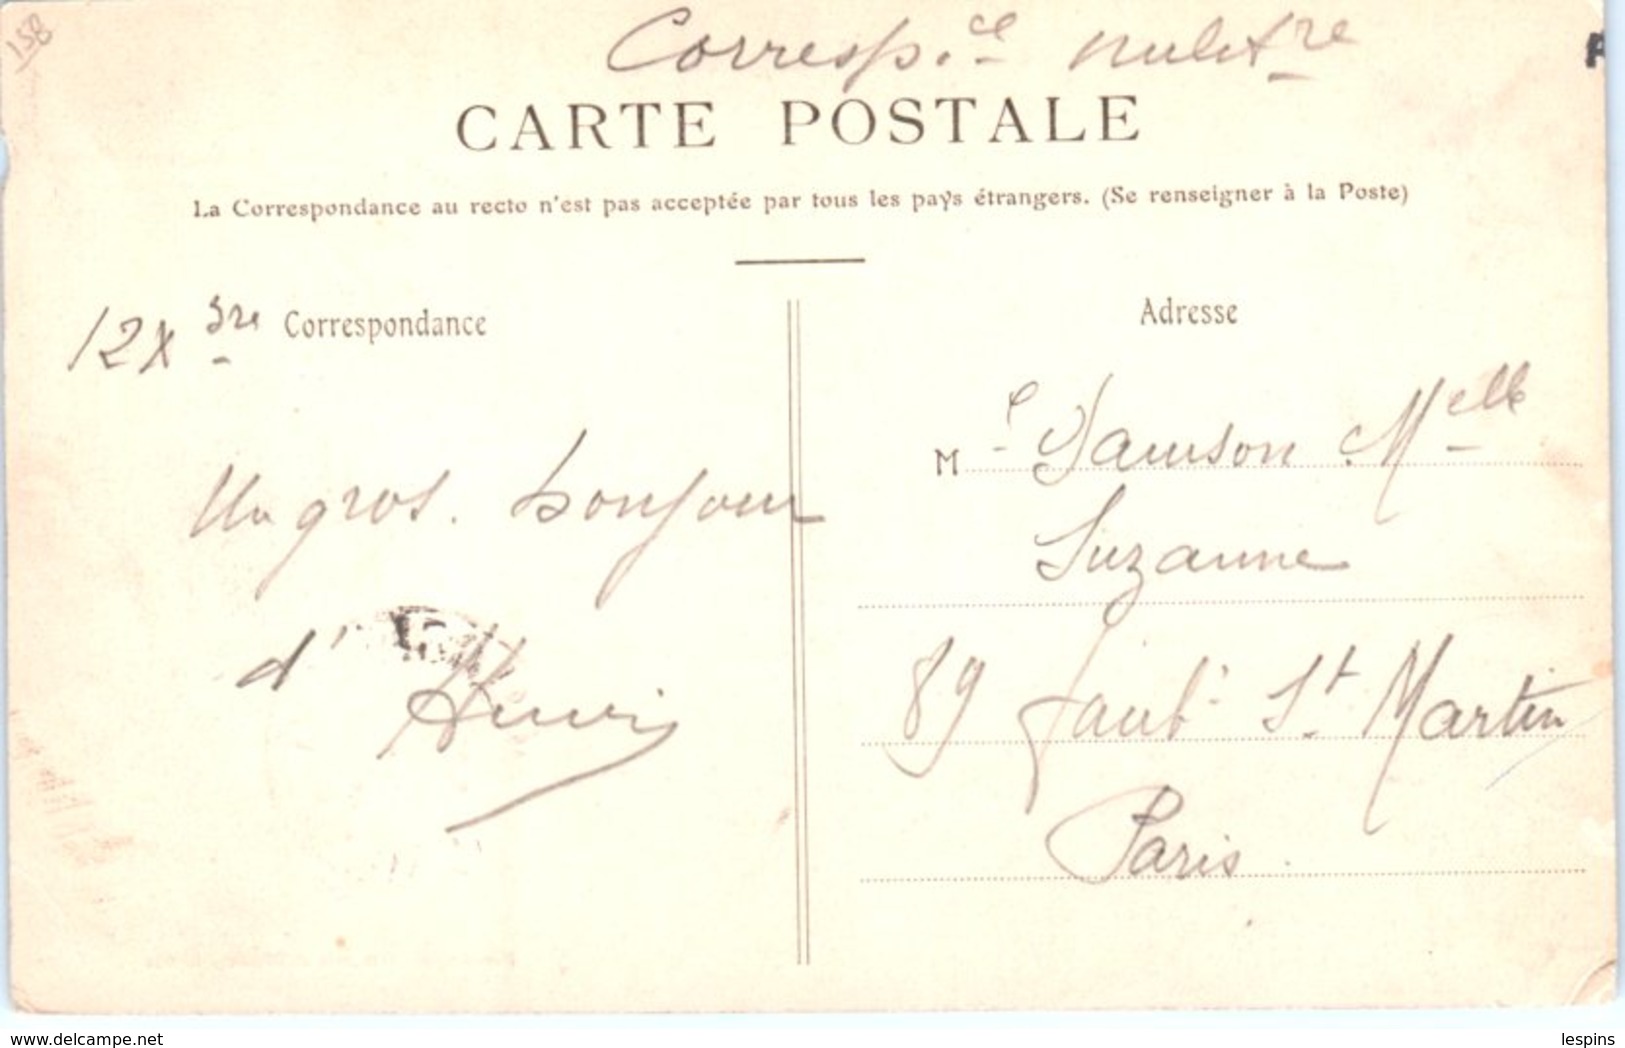 158
Corresp.ce milit.re
CARTE POSTALE
La Correspondance au recto n'est pas acceptée par tous les pays étrangers. (Se renseigner à la Poste)
12 Xbre Correspondance
Un gros bonjour
d'Henri
Adresse
M Melle
Suzanne
89 faub. St Martin
Paris
©www.delcampe.net
lespins